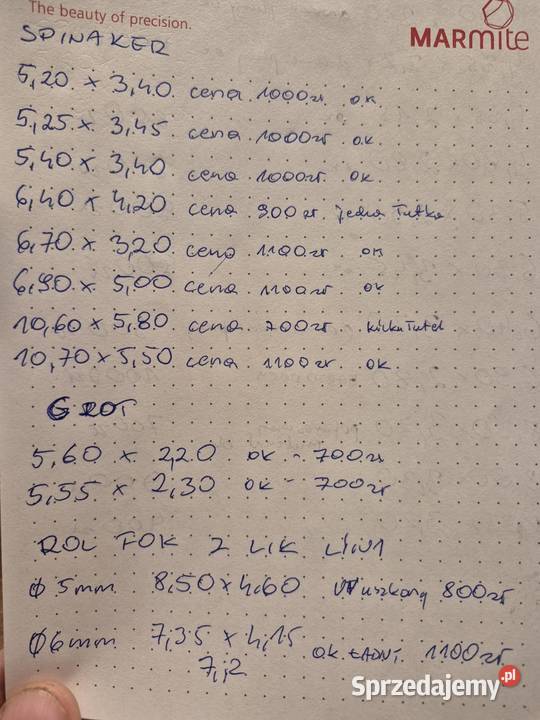 The beauty of precision.
MARMITE
SPINAKER
5,20 x 3,40 cena 1000zł ok
5,25 x 3,45 cena 1000zł ok
5,40 x 3,40 cena 1000zł ok
6,40 x 4,20 cena 900zł jedna łatka
6,70 x 3,20 cena 1100zł ok
6,90 x 5,00 cena 1100zł ok
10,60 x 5,80 cena 700zł kilka łatek
10,70 x 5,50 cena 1100zł ok
GROT
5,60 x 2,20 ok - 700zł
5,55 x 2,30 ok - 700zł
ROL FOK Z LIK LINĄ
φ 5mm 8,50 x 4,60 uszkang 800zł
φ 6mm 7,35 x 4,15 ok. ŁADNY. 1100zł
7,2
Sprzedajemy.pl